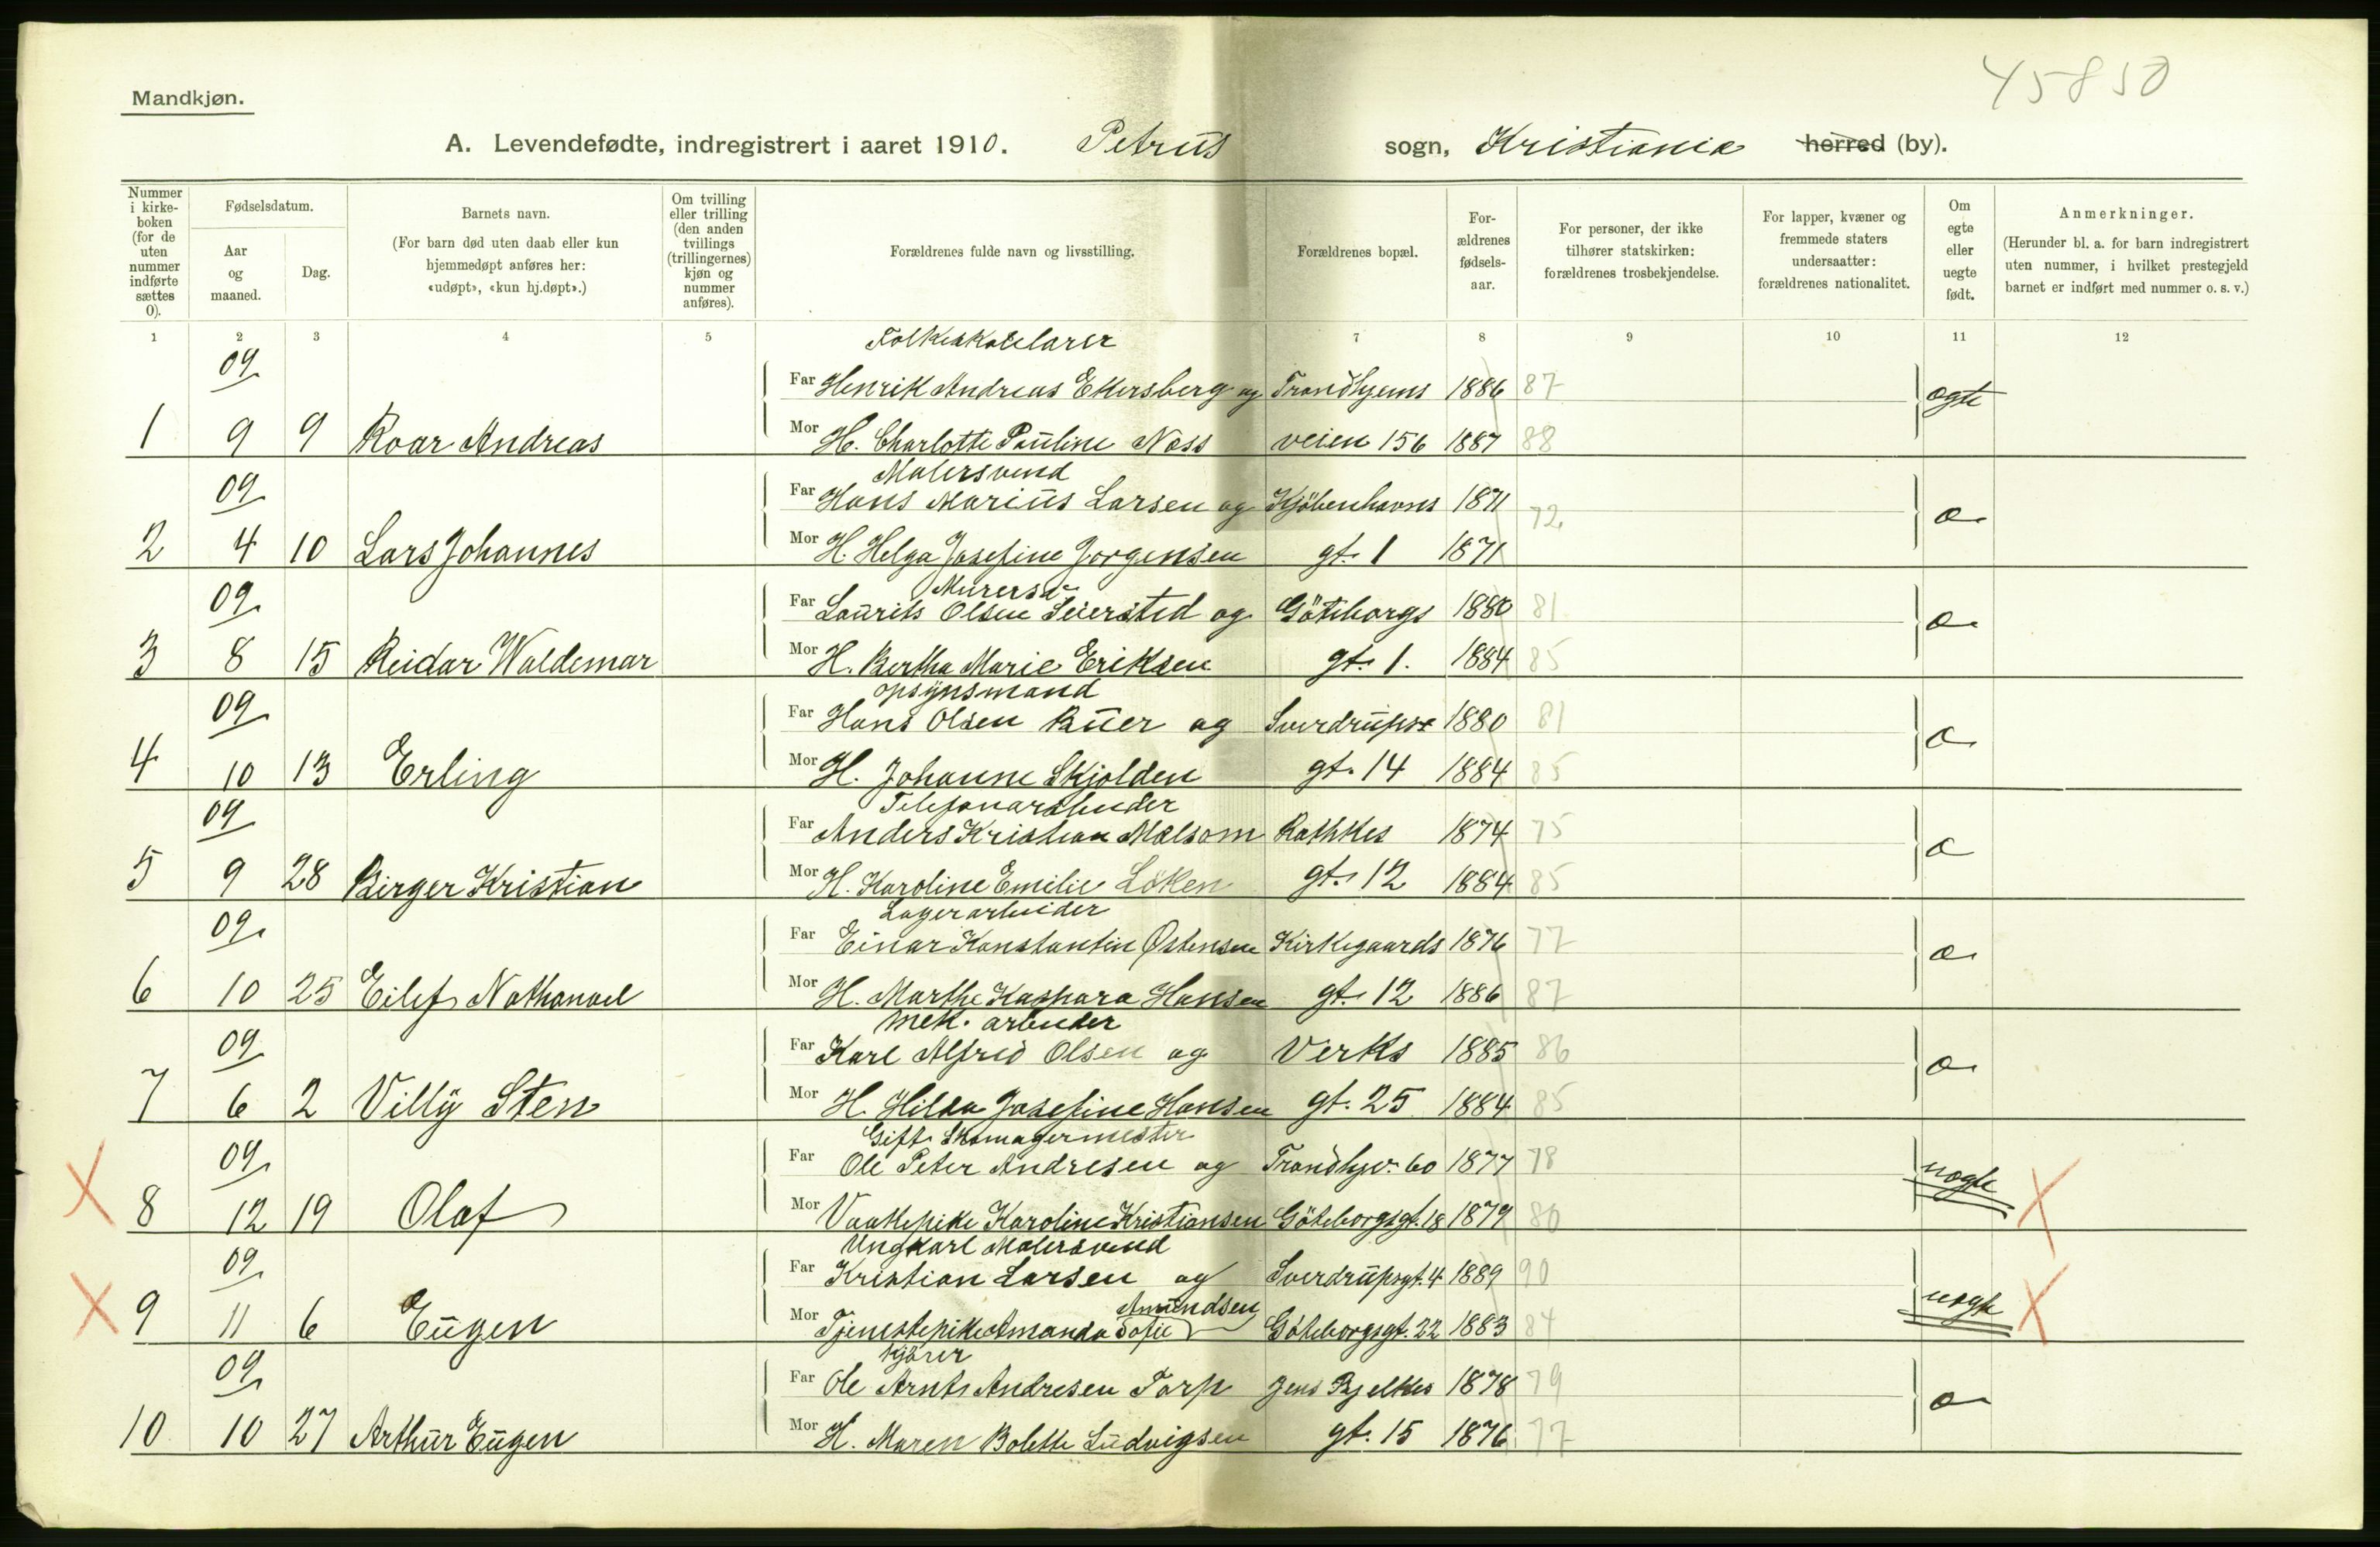 45850
Mandkjøn.
A. Levendefødte, indregistrert i aaret 1910. Petrus sogn, Kristiania herred (by).
Nummer i kirke-boken (for de uten nummer indførte sættes 0).
Fødselsdatum.
Aar og maaned.
Dag.
Barnets navn.
(For barn død uten daab eller kun hjemmedøpt anføres her: «udøpt», «kun hj.døpt».)
Om tvilling eller trilling (den anden tvillings (trillingernes) kjøn og nummer anføres).
Forældrenes fulde navn og livsstilling.
Forældrenes bopæl.
For-ældrenes fødsels-aar.
For personer, der ikke tilhører statskirken: forældrenes trosbekjendelse.
For lapper, kvæner og fremmede staters undersaatter: forældrenes nationalitet.
Om egte eller uegte født.
Anmerkninger.
(Herunder bl. a. for barn indregistrert uten nummer, i hvilket prestegjeld barnet er indført med nummer o. s. v.)
1 2 3 4 5 7 8 9 10 11 12
Folkeskolelærer
09 Far Henrik Andreas Ekersberg og Trondhjems 1886 87 ægte
1 9 9 Roar Andreas Mor H. Charlotte Pauline Næss veien 156 1887 88
Malersvend
09 Far Hans Marius Larsen og Kjöbenhavns 1871 72 æ
2 4 10 Lars Johannes Mor H. Helga Josefine Jorgensen gt. 1 1871
Murersv
09 Far Laurits Olsen Seiersted og Göteborgs 1880 81 æ
3 8 15 Reidar Waldemar Mor H. Bertha Marie Eriksen gt. 1. 1884 85
opsynsmand
09 Far Hans Olsen Buer og Sverdrups 1880 81 æ
4 10 13 Erling Mor H. Johanne Skjolden gt. 14 1884 85
Telefonarbeider
09 Far Anders Kristian Mælsom Rathkes 1874 75 æ
5 9 28 Birger Kristian Mor H. Karoline Emilie Löken gt. 12 1884 85
Lagerarbeider
09 Far Einar Konstantin Østensen Kirkegaards 1876 77 æ
6 10 25 Eilef Nathanael Mor H. Marthe Kaspara Hansen gt. 12 1886 87
Mek. arbeider
09 Far Karl Alfred Olsen og Verks 1885 86 æ
7 6 2 Villy Sten Mor H. Hilda Josefine Hansen gt. 25 1884 85
Gift Skomagermester
09 Far Ole Peter Andresen og Trondhjv. 60 1877 78 uægte
X 8 12 19 Olaf Mor Vaskepike Karoline Kristiansen Göteborgsgt. 18 1879 80 X
Ungkarl Malersvend
09 Far Kristian Larsen og Sverdrupsgt. 4 1889 90 uægte
Amundsen
X 9 11 6 Eugen Mor Tjenestepike Amanda Sofie Göteborgsgt. 22 1883 84 X
Kjörer
09 Far Ole Arnt Andresen Torp Jens Bjelkes 1878 79 æ
10 10 27 Arthur Eugen Mor H. Maren Bolette Ludvigsen gt. 15 1876 77